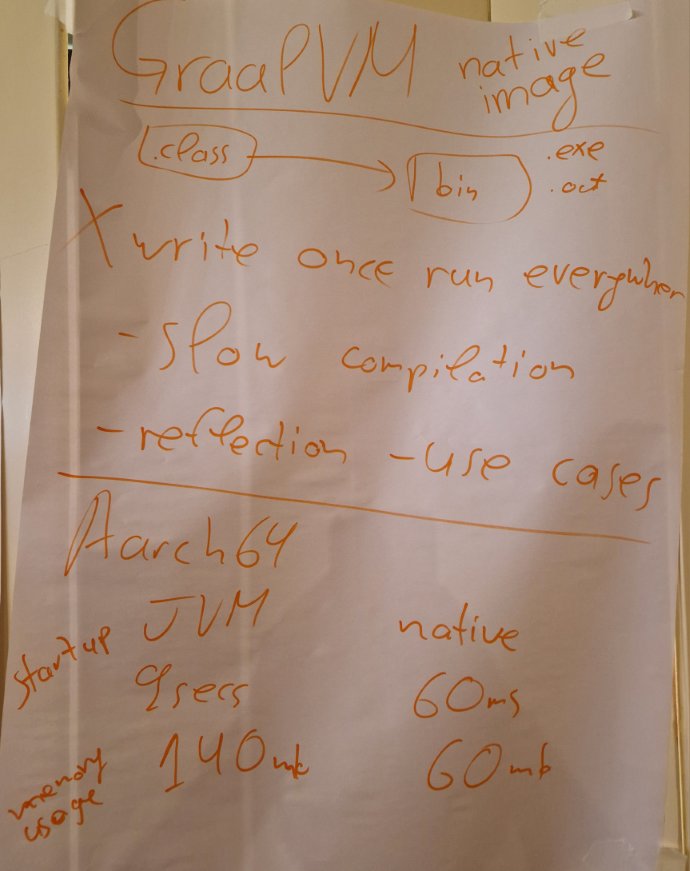 GraalVM native image
.class → bin .exe .out
X write once run everywher
- slow compilation
- reflection - use cases
Aarch64
JVM native
startup 9secs 60ms
memory usage 140mb 60mb